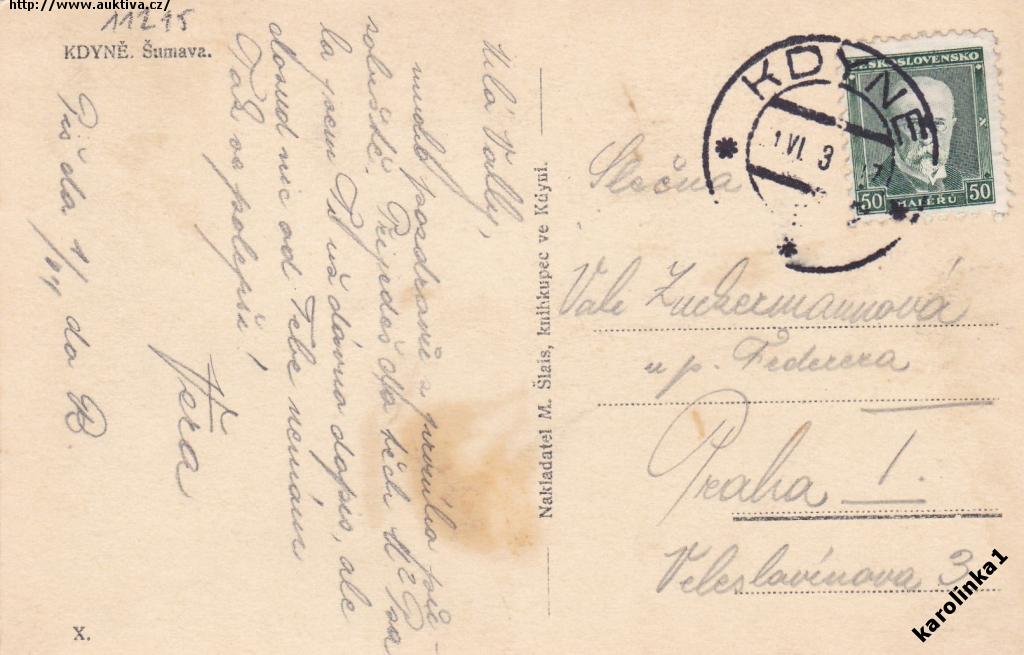 http://www.auktiva.cz/
11215
KDYNĚ. Šumava.
Milá Vally,
mnoho pozdravů z
la jsem Ti už dávno dopis, ale
dosud nic od Tebe nemám
Tak se polepši!
Věra
Piš do 1/ do
X.
Nakladatel M. Šlais, knihkupec ve Kdyni.
KDYNĚ
1 VI. 3
7
ČESKOSLOVENSKO
50 HALÉŘŮ 50
Slečna
Vale Zuckermannová
u p. Federera
Praha I.
Veleslavínova 3
karolinka1